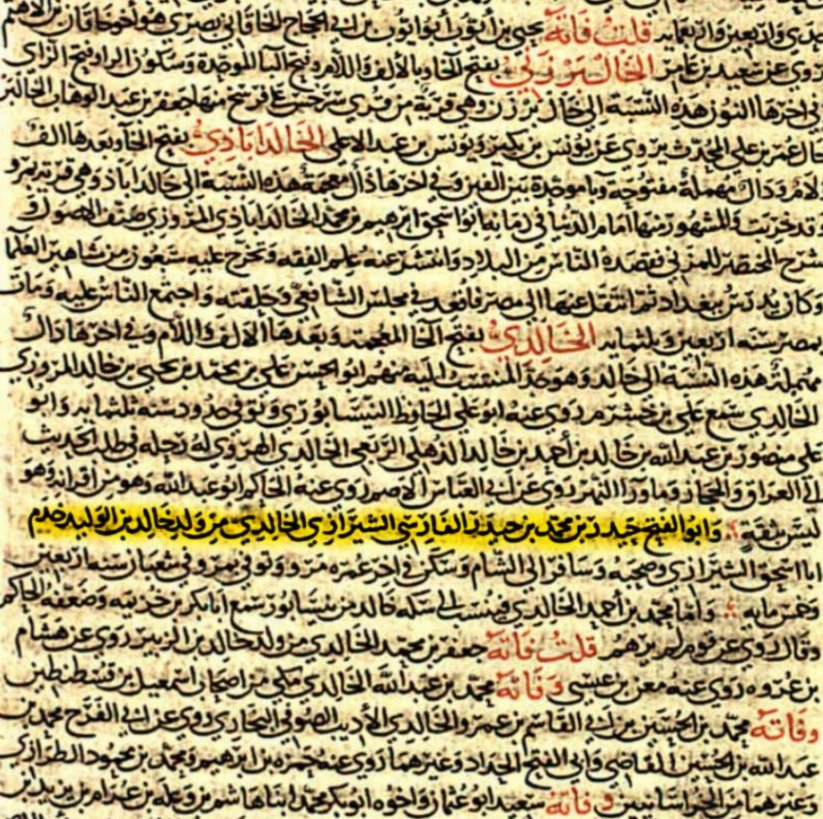 يروي وازبعين وازبعمايه قلت فاته يحيى بن ايوب أبو ايوب بن ابي الحجاج الخاقاني بصري هو أخو خاقان بن الاهتم
روى عن سعيد بن عامر الخالبرزني بفتح الخاء بالألف واللام وفتح البا الموحدة وسكون الراء وفتح الزاي
في اخرها النون هذه النسبة الى خال برزن وهي قرية من قرى سرخس على فرسخ منها جعفر بن عبد الوهاب
خال عمر بن علي المحدث يروي عن يونس بن بكير ويونس بن عبد الاعلى الخالداباذي بفتح الخاء وبعدها الف
ولام ودال مهملة مفتوحة وبا موحدة بين الفين وفي اخرها ذال معجمة هذه النسبة الى خالداباذ وهي قرية بمرو
وقد خربت والمشهور منها امام الدنيا في زمانه ابو اسحق ابرهيم بن محمد الخالداباذي المروزي صنف الاصول و
شرح المختصر للمزني فقصده الناس من البلاد وانتشر عنه علم الفقه وتخرج عليه سبعون من مشاهير العلما
وكان يدرس ببغداد ثم انتقل عنها الى مصر فاقعد في مجلس الشافعي وحلقته واجتمع الناس عليه ومات
بمصر سنه اربعين وثلثمايه الخالدي بفتح الخا المعجمة وبعدها الالف واللام وفي اخرها دال
مهملة هذه النسبة الى خالد وهو جد المنتسب اليه منهم ابو الحسن علي بن محمد بن يحيى بن خالد المروزي
الخالدي سمع علي بن خشرم روى عنه ابو علي الحافظ النيسابوري وتوفي حدود سنه ثلثمايه وابو
علي منصور بن عبد الله بن خالد بن أحمد بن خالد الذهلي الخالدي الهروي له رحلة في طلب الحديث
الى العراق والحجاز وما وراالنهر روى عن ابي العباس الاصم روى عنه الحاكم ابو عبد الله وهو من اقرانه وهو
ليس بثقة وابو الفتح حيدر بن محمد بن حيدر الفارسي الشيرازي الخالدي من ولد خالد بن الوليد خدم
ابا اسحق الشيرازي وصحبه وسافر الى الشام وسكن في اخر عمره مرو وتوفي بمرو في شعبان سنه اربعين
وخمس مايه واما محمد بن أحمد الخالدي فينسب الى سكه خالد بن نيسابور سمع ابا بكر بن خزيمه وضعفه الحاكم
وقال روى عن قوم لم يرهم قلت فاته جعفر بن محمد الخالدي من ولد خالد بن الزبير روى عن هشام
بن عروه روى عنه معن بن عيسى وفاته محمد بن عبد الله الخالدي مكي من اصحاب اسمعيل بن قسطنطين
وفاته محمد بن الحسين بن ابي القاسم بن عمرو الخالدي الأديب الصوفي البخاري روى عن ابي الفرج محمد بن
عبد الله بن الحسين القاضي وابي الفتح الحداد وغيرهما روى عنه حمزه بن ابرهيم ومحمد بن محمود الطرازي
وغيرهما من الخراسانيين وفاته سعيد ابو عثمان واخوه ابو بكر محمد ابنا هاشم بن وعلة بن عرام بن يزيد بن